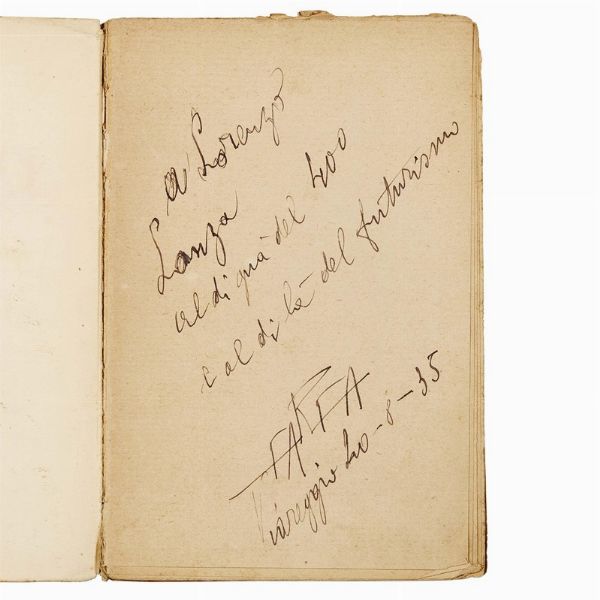 A Lorenzo
Lanza
al di quà del 400
e al di là del futurismo
FARFA
Viareggio 20-8-35